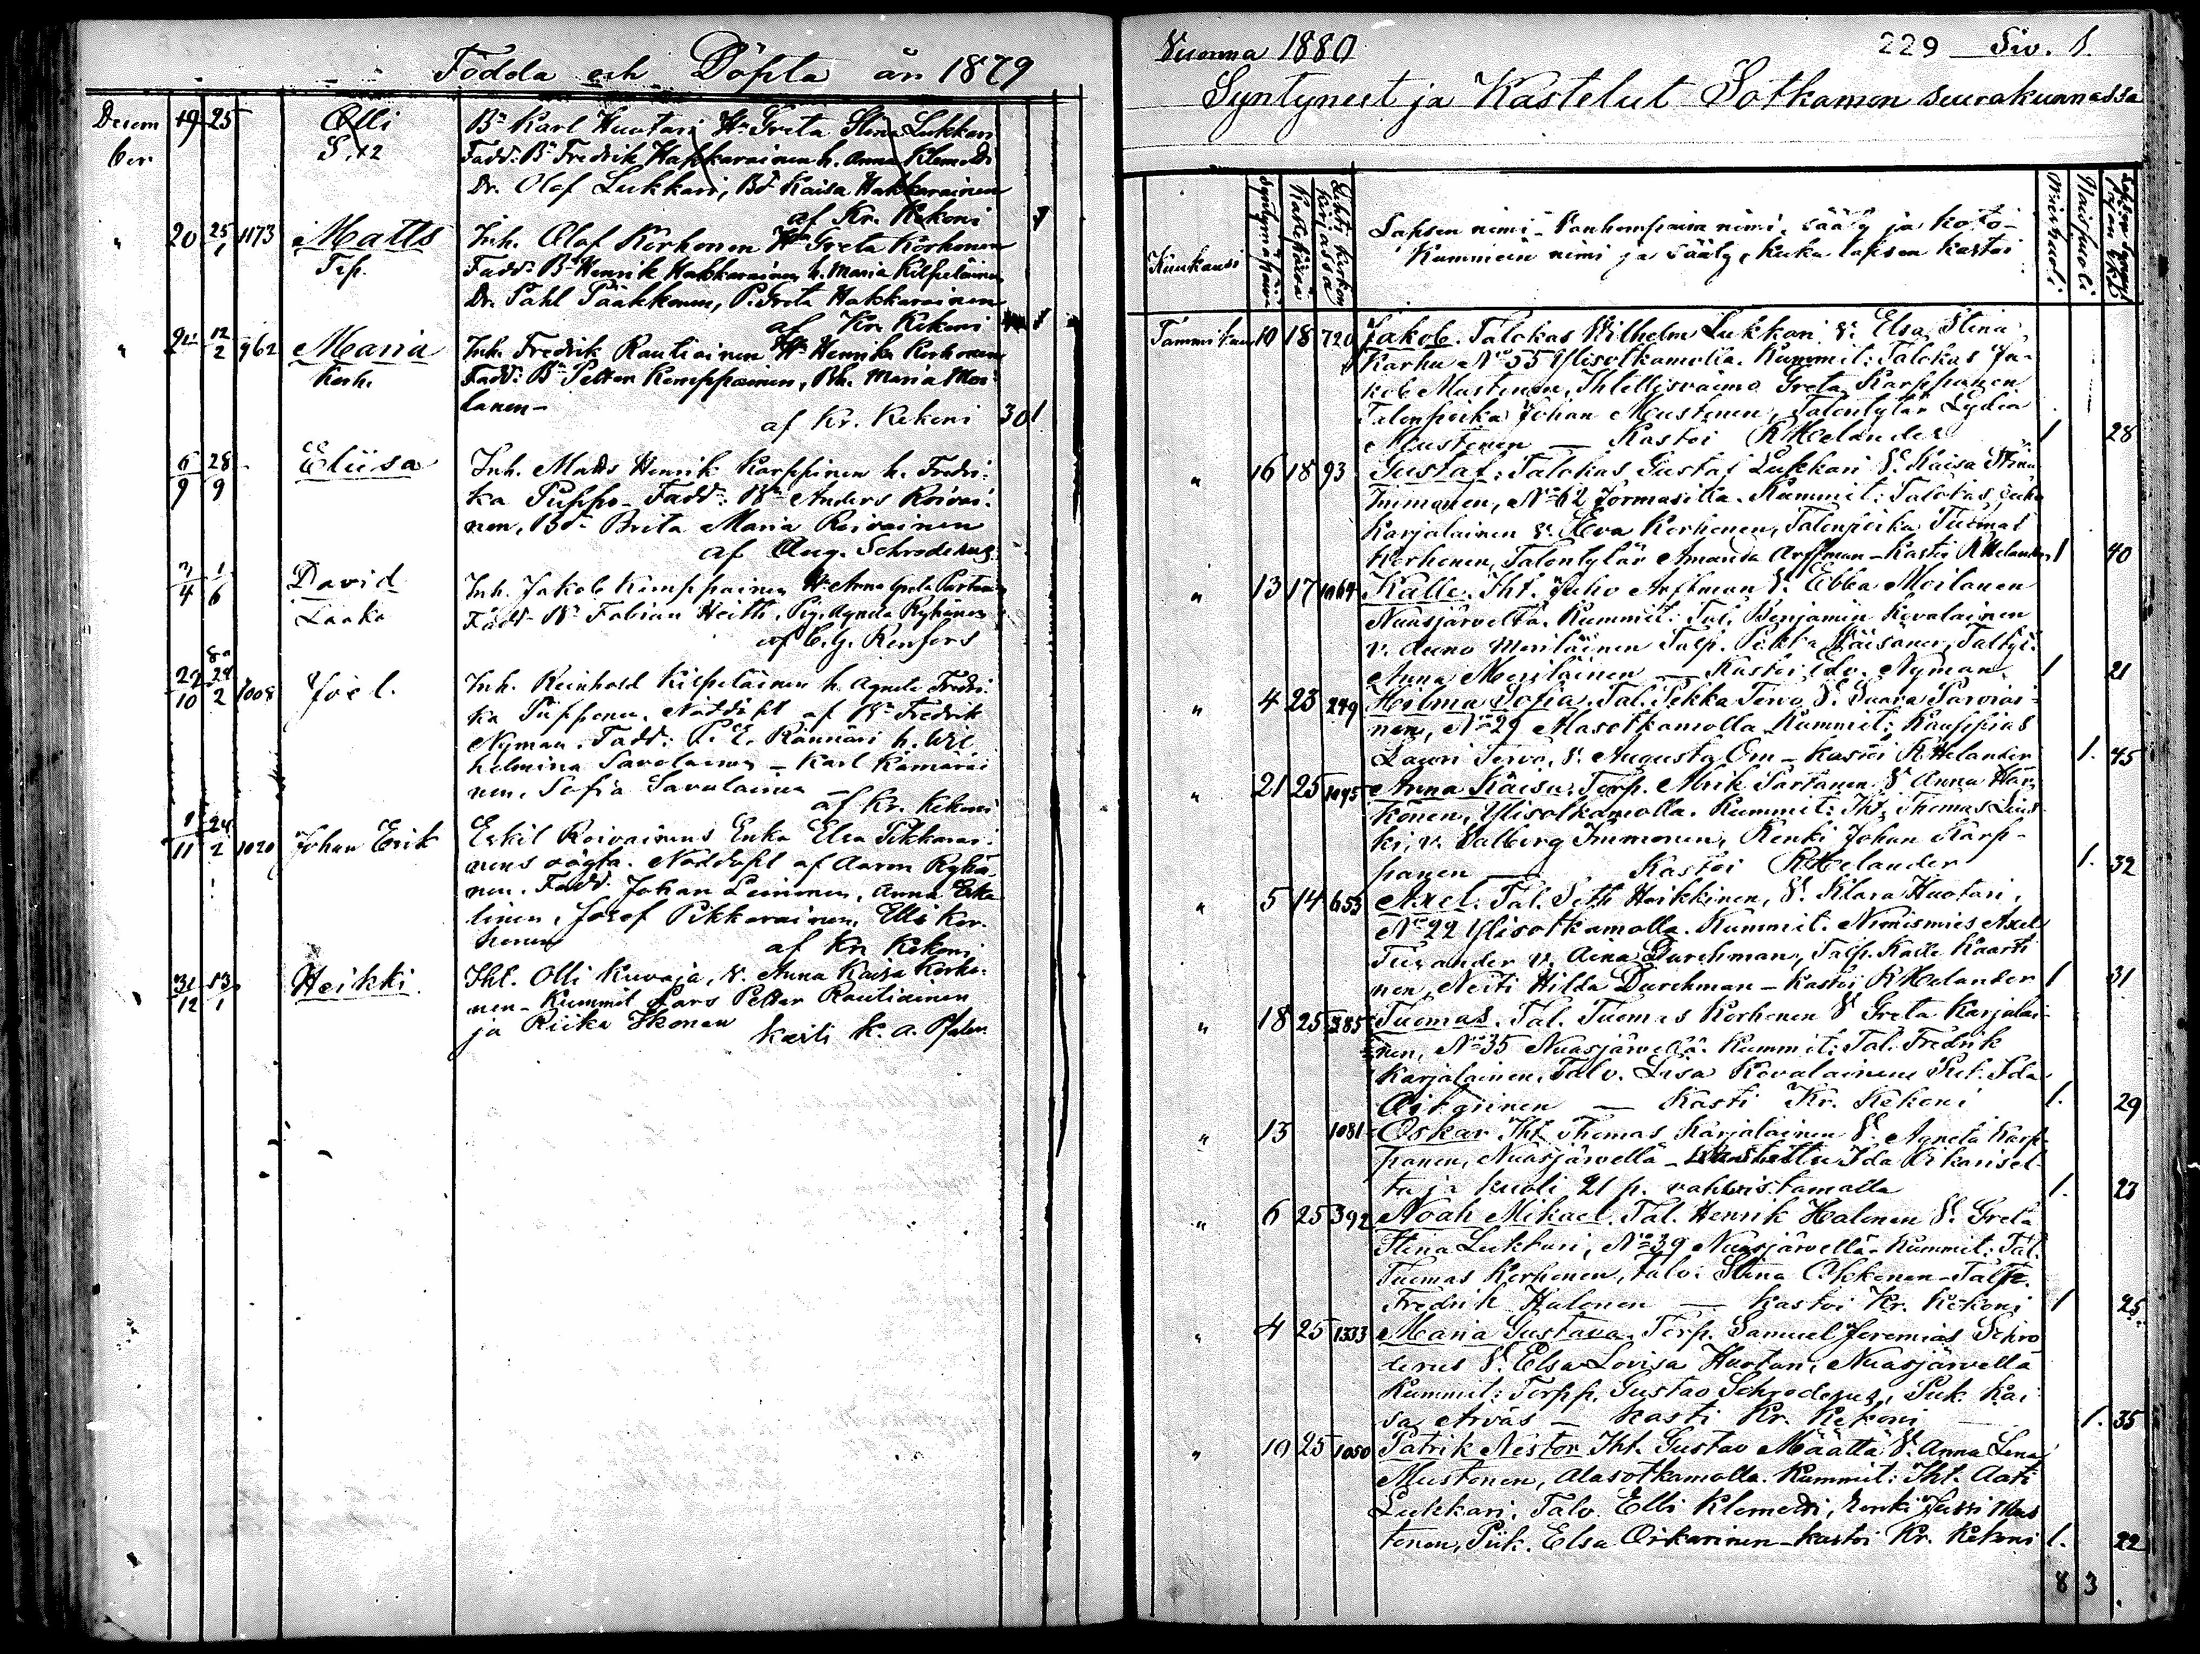 Födda och Döpta år 1879
Decem 19 25 Olli Bn Karl Huotari Hn Greta Stina Lukkari
ber. S. 42 Fadd: Bn Fredrik Hakkarainen h. Anna Klemetti
Dr. Olof Lukkari, Bd Kaisa Hakkarainen
af Kr. Kekoni
" 20 25/1 1173 Matts Inh. Olof Korhonen Hn Greta Korhonen 1
Trp. Fadd: Bn Henrik Hakkarainen h. Maria Kilpeläinen
Dr. Påhl Pääkkönen, P. Greta Hakkarainen
af Kr. Kekoni 1
" 24 12/2 962 Maria Inh. Fredrik Rautiainen Hn Henrika Korhonen
Korh. Fadd: Bn Petter Kemppainen, Bh. Maria Moi-
lanen –
af Kr. Kekoni 30 1
6/9 28/9 Eliisa Inh. Matts Henrik Karppinen h. Fredri-
ka Puppo – Fadd: Bn Anders Roivai-
nen, Bd Brita Maria Roivainen
af Aug. Schroderus
3/4 1/6 David Inh. Jakob Kemppainen Hn Anna Greta Partanen
Laaka Fadd: Bn Fabian Heith, Pig. Agneta Ryhänen
af C. G. Renfors
22/10 24/2 1008 Joel. Inh. Reinhold Kilpeläinen h. Agneta Fredri-
ka Tuppenen. Nöddöpt af Bn Fredrik
Nyman. Fadd: P. E. Kännäri h. Wil-
helmina Savolainen – Karl Kämäräi-
nen, Sofia Savolainen –
af Kr. Kekoni
1/11 24/2 1020 Johan Erik Eskil Roivainens Enka Elsa Pikkarai-
nens oägta. Nöddöpt af Aaron Ryhä-
nen. Fadd. Johan Leinonen, Anna
linen, Josef Pikkarainen, Elli Kor-
honen
af Kr. Kekoni
31/12 13/1 Heikki Iht. Olli Kuvaja, V. Anna Kaisa Korho-
nen – Kummit Lars Petter Rautiainen
ja Riika Ikonen
kasti K. A. Pfaler
Vuonna 1880 229 Siv. 1.
Syntyneet ja Kastetut Sotkamon seurakunnassa
Kuukausi
Syntymäpäivä
Kastepäivä
Lehti kirkonkirjassa
Lapsen nimi – Vanhempain nimi, sääty ja koto –
Kummein nimi ja sääty, kuka lapsen kastoi
Miehenpuoli
Naispuoli
Tammikuu 10 18 720 Jakob. Talokas Wilhelm Lukkari V. Elsa Stina
Karhu No 55 Ylisotkamolla. Kummit: Talokas Ja-
kob Mustonen, Ihtellisvaimo Greta Karppanen
Talonpoika Johan Mustonen, Talontytär Lydia
Mustonen — Kastoi R Helander 1 28
" 16 18 93 Gustaf. Talokas Gustaf Lukkari V. Kaisa Stina
Immonen, No 62 Jormasilla. Kummit: Talokas Juho
Karjalainen V. Eva Korhonen, Talonpoika Tuomas
Korhonen, Talontytär Amanda Arffman – Kastoi R Helander 1 40
" 13 17 1064 Kalle. Iht. Juho Arffman V. Ebba Moilanen
Nuasjärveltä. Kummit: Tal. Benjamin Kovalainen
v. Auno Meriläinen Talp. Pekka Väisänen, Taltyt.
Anna Meriläinen — Kastoi Edv. Nyman 1 21
" 4 23 249 Hilma Sofia. Tal. Pekka Tervo V. Susara Parviai-
nen, No 29 Alasotkamolla Kummit: Kauppias
Lauri Tervo, V. Augusta Om – Kastoi R Helander 1. 45
" 21 25 1095 Anna Kaisa. Torp. Abrik Partanen V. Anna Här-
könen, Ylisotkamolla. Kummit: Iht. Thomas Leis-
ki, v. Valborg Immonen, Renki Johan Karp-
panen — Kastoi R Helander 1. 32
" 5 14 655 Axel. Tal. Seth Heikkinen, V. Klara Huotari,
No 22 Ylisotkamolla. Kummit. Nimismies Axel
Tuxander v. Aina Durchman, Talp. Kalle Kaarti
nen, Neiti Hilda Durchman – Kastoi R Helander 1 31
" 18 25 385 Tuomas. Tal. Tuomas Korhonen V Greta Karjalai-
nen, No 35 Nuasjärvellä. Kummit: Tal. Fredrik
Karjalainen, Talv. Liisa Kovalainen Piik. Ida
Oikarinen — Kasti Kr. Kekoni 1. 29
" 13 1081 Oskar Iht. Thomas Karjalainen V. Agneta Karp-
panen, Nuasjärvellä – Ida Oikarisel-
ta ja kuoli 21 p. vahvistamatta 1. 23
" 6 25 392 Noah Mikael. Tal. Henrik Halonen V. Greta
Stina Lukkari, No 39 Nuasjärvellä. Kummit: Tal.
Tuomas Korhonen, Talv. Stina Okkonen – Talp.
Fredrik Halonen — Kastoi Kr. Kekoni 1 25
" 4 25 1333 Maria Gustava. Torp. Samuel Jeremias Schro
derus V. Elsa Lovisa Huotari, Nuasjärvellä
Kummit: Torpp. Gustav Schroderus, Piik. Kai
sa Arvas – Kasti Kr. Kekoni 1. 35
" 10 25 1050 Patrik Nestor Iht. Gustav Määttä V. Anna Lena
Mustonen, Alasotkamolla. Kummit: Iht. Aati
Lukkari, Talv. Elli Klemetti, renki Jussi Mus
tonen, Piik. Elsa Oikarinen – Kastoi Kr. Kekoni 1. 22
8 3